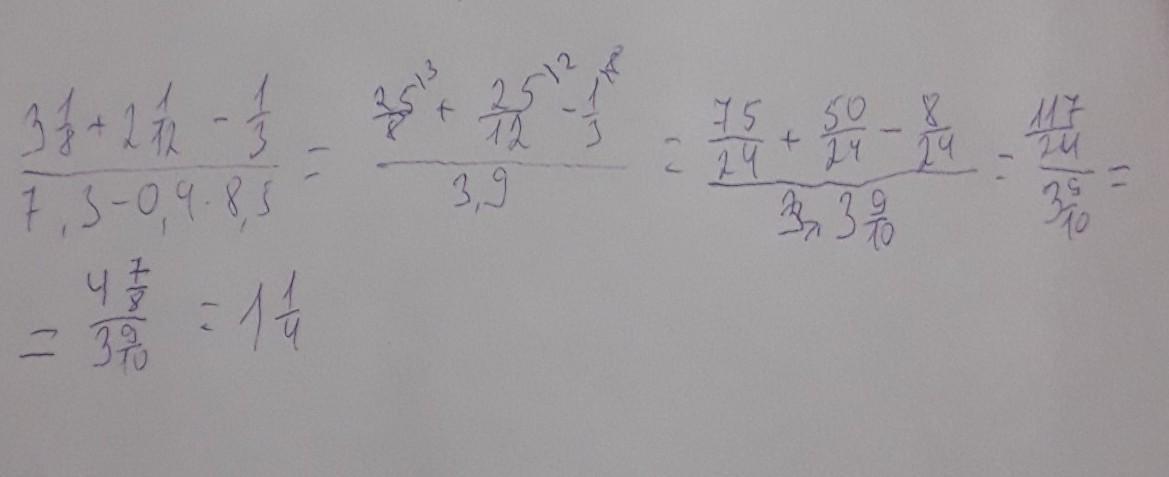 (3 1/8 + 2 1/12 - 1/3) / (7,3 - 0,4 · 8,5) = (25/8 \3 + 25/12 \2 - 1/3 \8) / 3,9 = (75/24 + 50/24 - 8/24) / (3 9/10) = (117/24) / (3 9/10) =
= (4 7/8) / (3 9/10) = 1 1/4